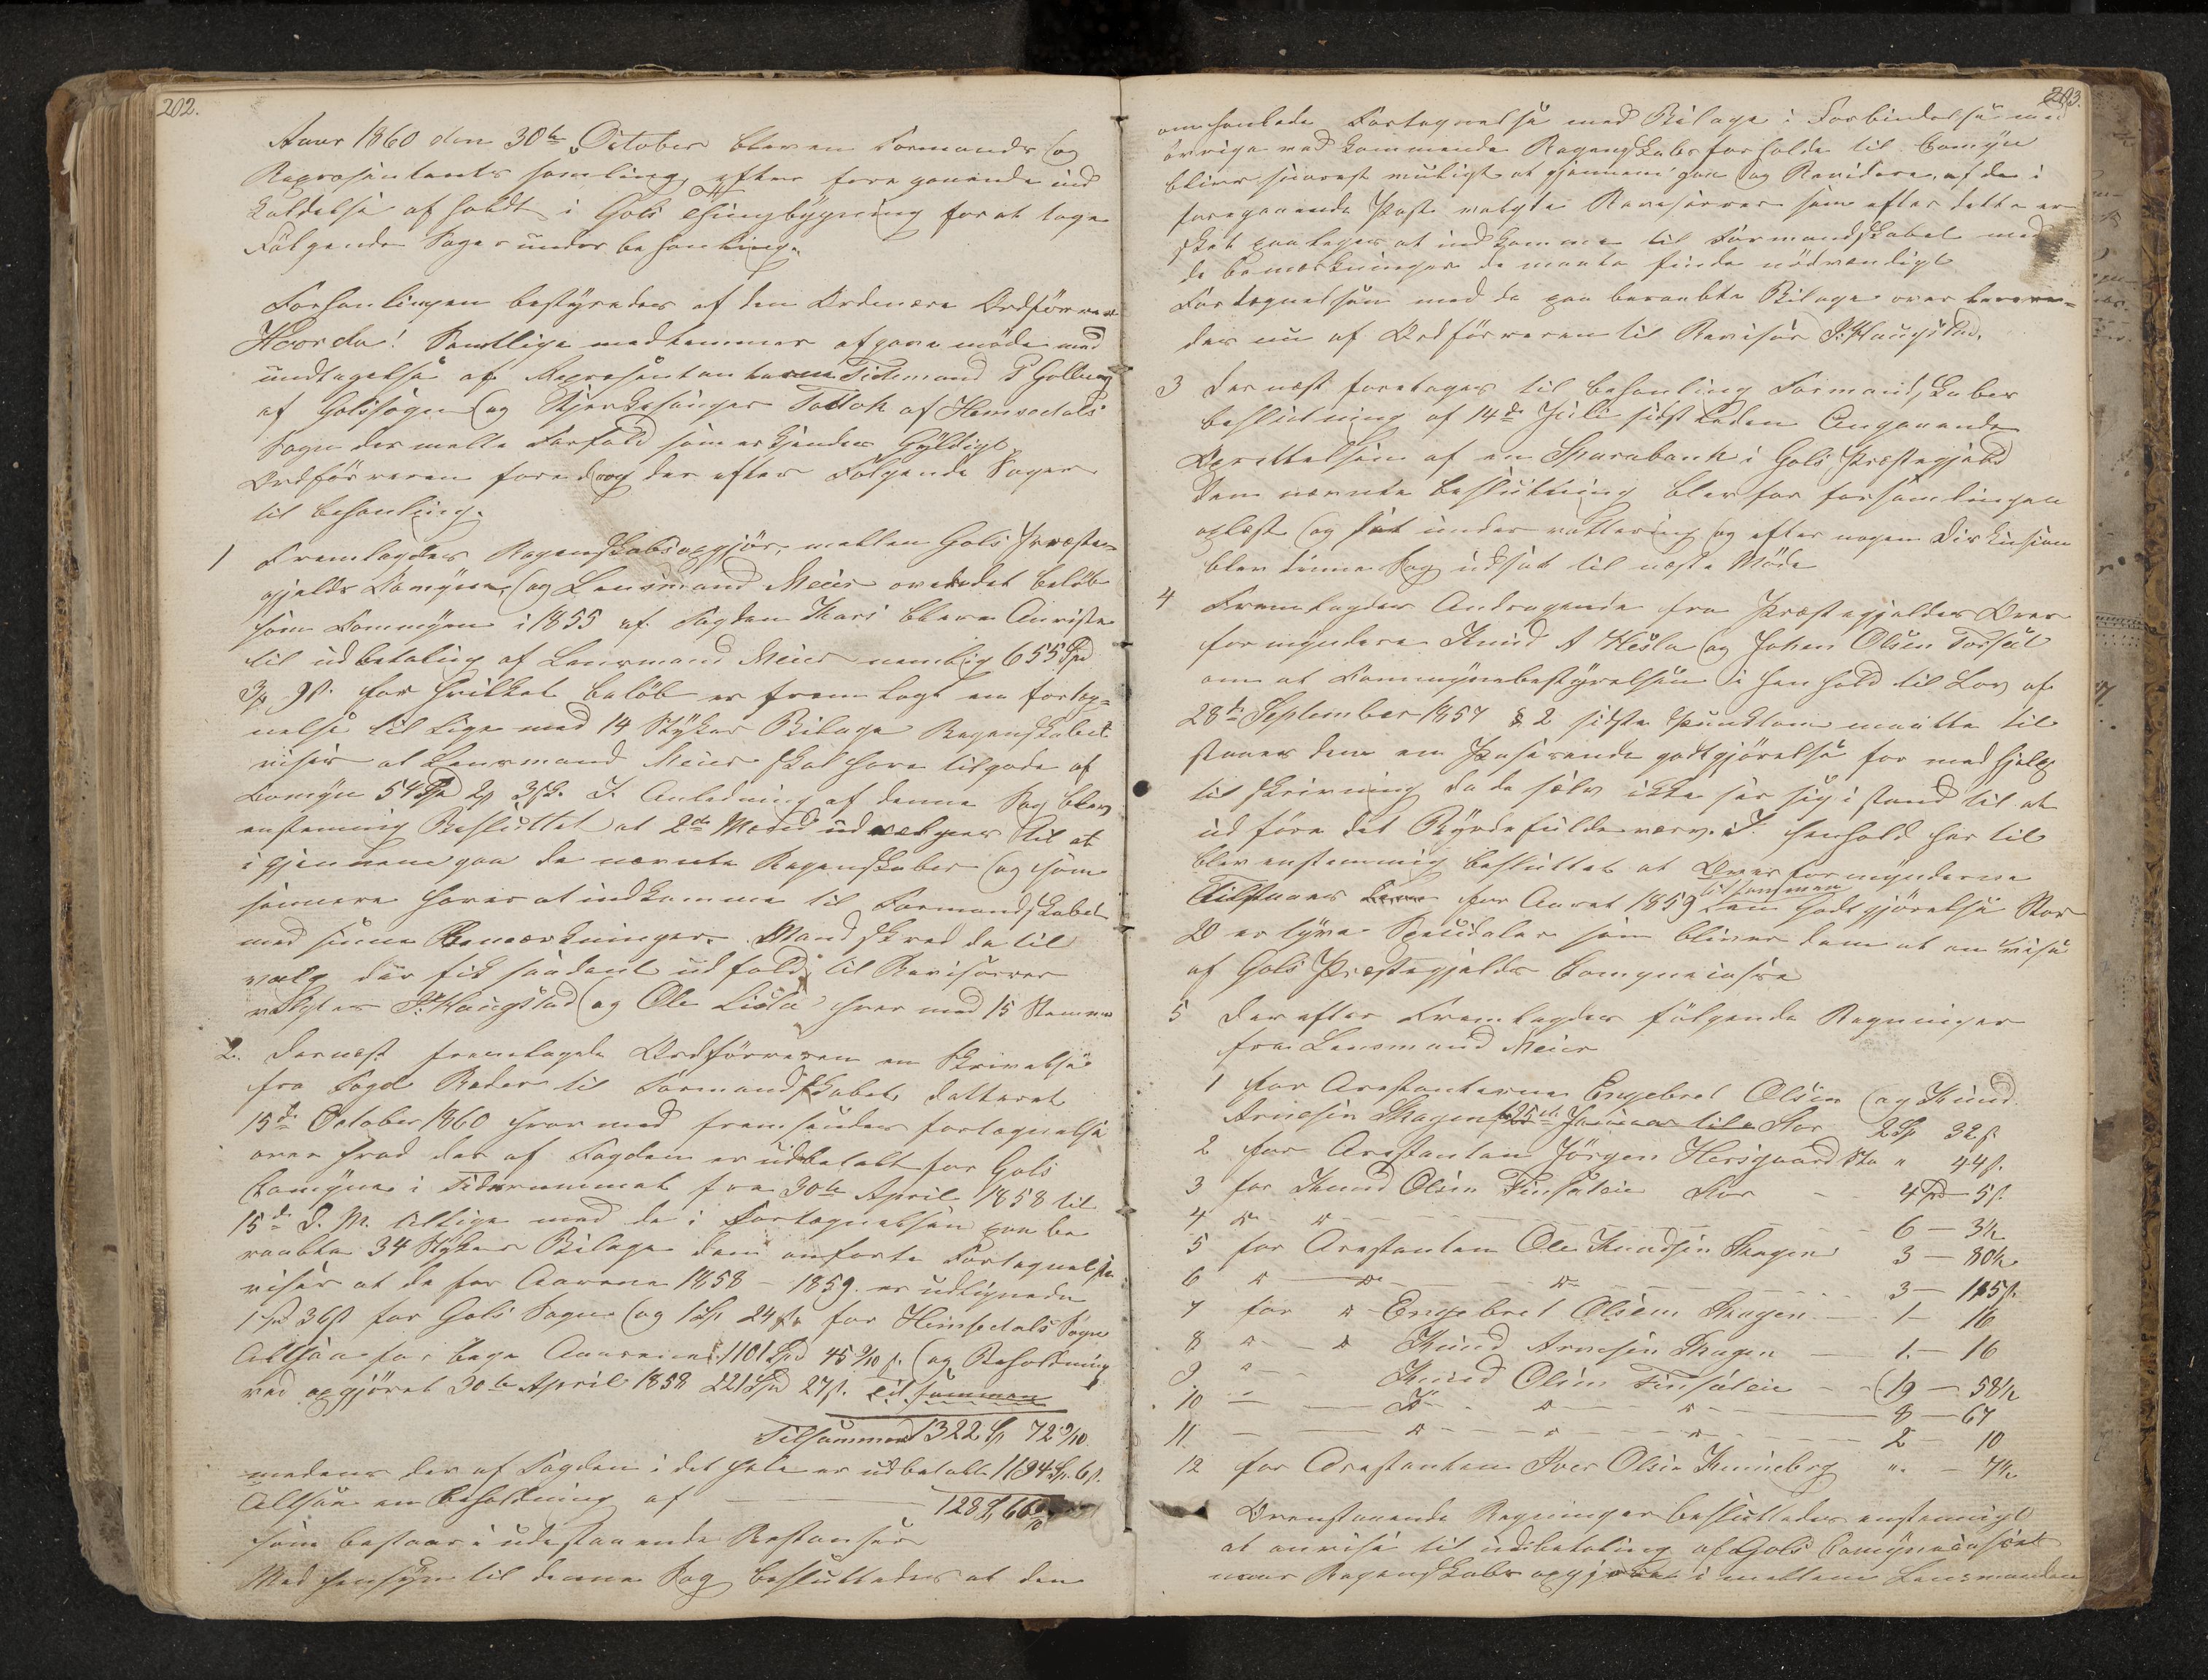 202.
Aaar 1860 den 30te October blev en Formands og
Repræsentants samling efter foregaaende ind
kaldelse afholdt i Gols Thingbygning for at tage
Følgende Sager under behanling.
Forhanlingen bestyredes af den Ordinære Ordförrer
Hoorda! Samtlige medlemmer afgave møde med
undtagelse af Repræsentanterne Tidemand P Golberg
af Golssogn og Kjerkesanger Tollok af Hemsedals
Sogn der melte Forfald som erkjendes Gyldigt
Ordförreren foredrog der efter Følgende Sager
til behanling.
1 Fremlagdes Regenskabsopgjør, mellem Gols Præste
gjelds Comyne, og Lensmand Meier over det beløb
som Commynen i 1855 af Fogden Thars bleve Anviste
til udbetaling af Lensmand Meier nemlig 655 Spd
3 9s. for hvilket beløb er fremlagt en forteg=
nelse tillige med 14 Stykker Bilage Regenskabet
viser at Lensmand Meier skal have tilgode af
Comyn 54 Spd 2 3sk. I Anledning af denne Sag blev
enstemmig Besluttet at 2de Mænd udvælges til at
igjennemgaa de nævnte Regenskaber og som
sennere haver at indkomme til Formandskabet
med sinne Bemærkninger. Mand skred da til
valg der fik saadant udfald; til Revisorer
valgtes P. Haugstad og Ole Liola hver med 15 Stemmer
2. Dernæst fremlagde Ordförreren en Skrivelse
fra Fogd Reder til Formandskabet datteret
15de October 1860 hvor med fremsendes fortegnelse
over hvad der af Fogden er udbetalt for Gols
Comyne i Tidsrummet fra 30te April 1858 til
15de D. M. tillige med de i Fortegnelsen paabe
raabte 34 Stykker Bilage den anforte Fortegnelse
viser at de for Aarene 1858 - 1859. er udlignede
1 36s for Gols Sogn og 1 24s for Hemsedals Sogn
Altsaa for begge Aarene 1101 Spd 45 9/10 s. og Beholdning
ved opgjøret 30te April 1858 221 Spd 27s. Tilsammen
Tilsammen 1322 Sp 72 9/10
medens der af Fogden i det hele er udbetalt 1194 Sp. 6s.
Altsaa en Beholdning af 128 Sp 66 9/10
som bestaar i udestaaende Restanser
Med Hensyn til denne Sag besluttedes at den
203.
omhanlede Fortegnelse med Bilage i Forbindelse med
øvrige vedkommende Regenskabsforholde til Comyn
bliver snarest muligt at gjennemgaa og Revidere, af de i
foregaaende Post valgte Revisorer som efter dette er
sket paaleges at indkomme til Formandskabet med
de bemærkninger de maate finde nødvendigt
Fortegnelsen med de paaberaabte Bilage over levere=
des nu af Ordförreren til Revisor P. Haugstad.
3 Der næst foretages til behanling Formandskabes
beslutning af 14de Juli sidstleden Angaaende
Oprettelsen af en Sparebank i Gols Præstegjeld
Den nævnte beslutning blev for forsamlingen
oplæst og sat under vottering og efter nogen Diskusion
blev denne Sag udsat til næste Møde
4 Fremlagdes Andragende fra Præstegjeldes Over
formyndere Knud A Hesla og Johan Olsen Torset
om at Commynebestyrelsen i henhold til Lov af
28de September 1857 § 2 sidste punktom maatte til
staaes dem en Passende godtgjørelse for medhjelp
til skrivning da de selv ikke ser sig i stand til at
ud føre det Byrdefulde værv. I henhold her til
blev enstemmig besluttet at Overformynderne
Tilstaaes for Aaret 1859 tilsammen en Godtgjørelse Stor
20 er tyve Speidaler som bliver dem at anvise
af Gols Præstegjelds Comynecasse
5 Der efter Fremlagdes følgende Regninger
fra Lensmand Meier
1 for Arestanterne Engebret Olsen og Knud
Arnesen Skagen Stor 2 Sp 32s
2 for Arestanten Jörgen Hersgaard Sto " 44s.
3 for Knud Olsen Finsatein Stor - 4 Spd 5s.
4 do do - 6 - 3
5 for Arestanten Ole Knudsen Skagen 3 - 80
6 do do do - 3 - 115s.
7 for do Engebret Olsen Skagen - 1 - 16
8 do - do Knud Arnesen Skagen - 1. - 16
9 " - Knud Olsen Finsatein - 19 - 58
10 - do do do - 8 - 67
11. - do do do - 2 10
12 for Arestanten Iver Olsen Kinneberg " - 7
Ovenstaaende Regninger besluttedes enstemmigt
at anvise til udbetaling af Gols Comynecasse
naar Regenskabs opgjør i mellem Lensmanden